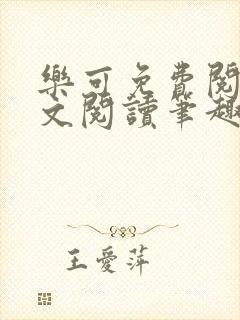 樂可免費閱
文閱讀筆趣
王愛萍